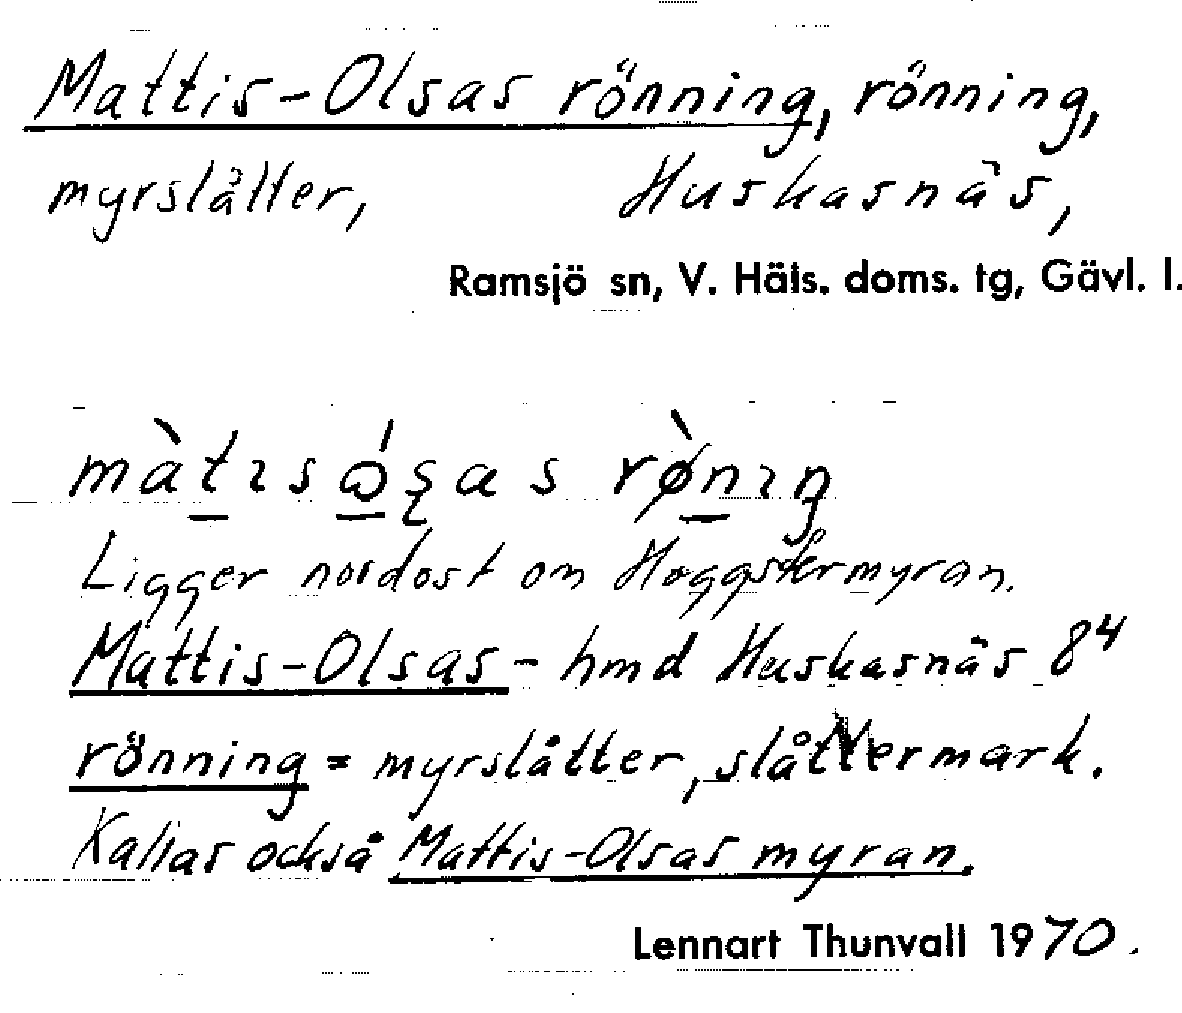 Mattis-Olsas rönning, rönning,
myrslåtter, Huskasnäs,
Ramsjö sn, V. Häls. doms. tg, Gävl. l.
Ligger nordost om Hoggstermyran.
Mattis-Olsas - hmd Huskasnäs 8⁴
rönning = myrslåtter, slåttermark.
Kallas också Mattis-Olsas myran.
Lennart Thunvall 1970.